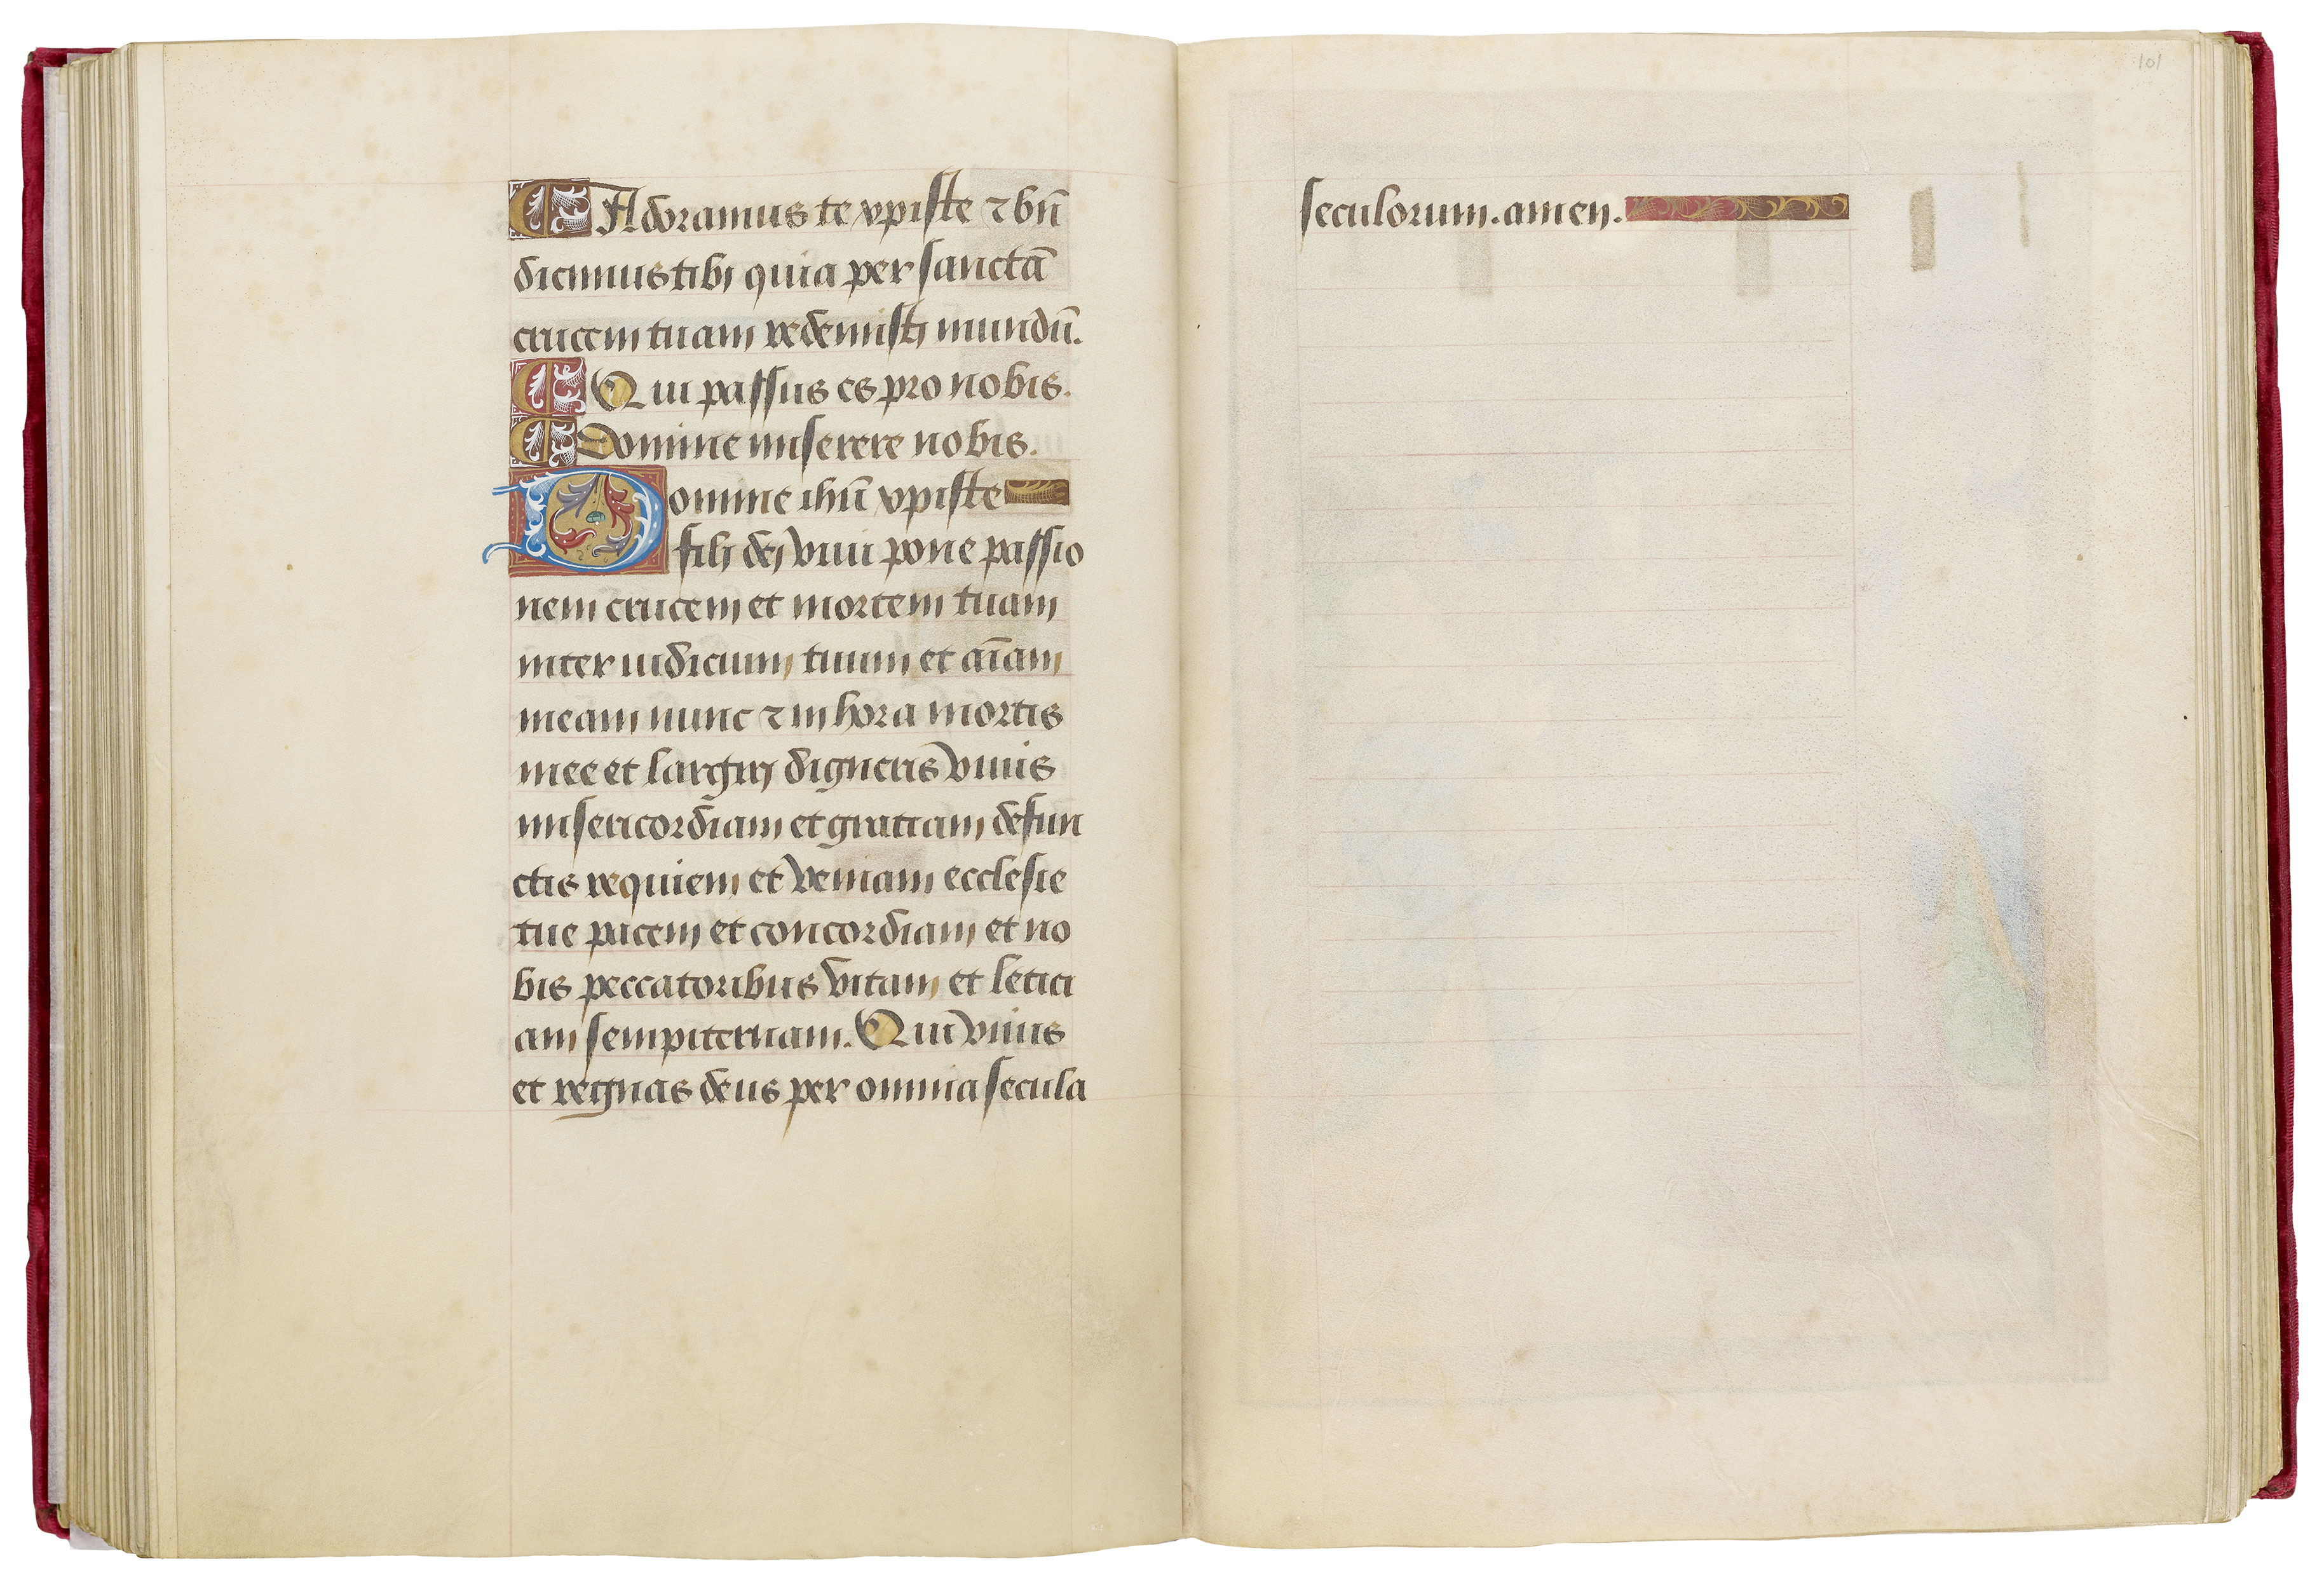 Adoramus te xpiste ⁊ bn̄
dicimus tibi quia per sanctā
crucem tuam redemisti mundū.
Qui passus es pro nobis.
Domine miserere nobis.
Domine ihū xpiste
fili dei viui pone passio
nem crucem et mortem tuam
inter iudicium tuum et aīam
meam nunc ⁊ in hora mortis
mee et largiri digneris viuis
misericordiam et gratiam defun
ctis requiem et veniam ecclesie
tue pacem et concordiam et no
bis peccatoribus vitam et letici
am sempiternam. Qui viuis
et regnas deus per omnia secula
101
seculorum. amen.